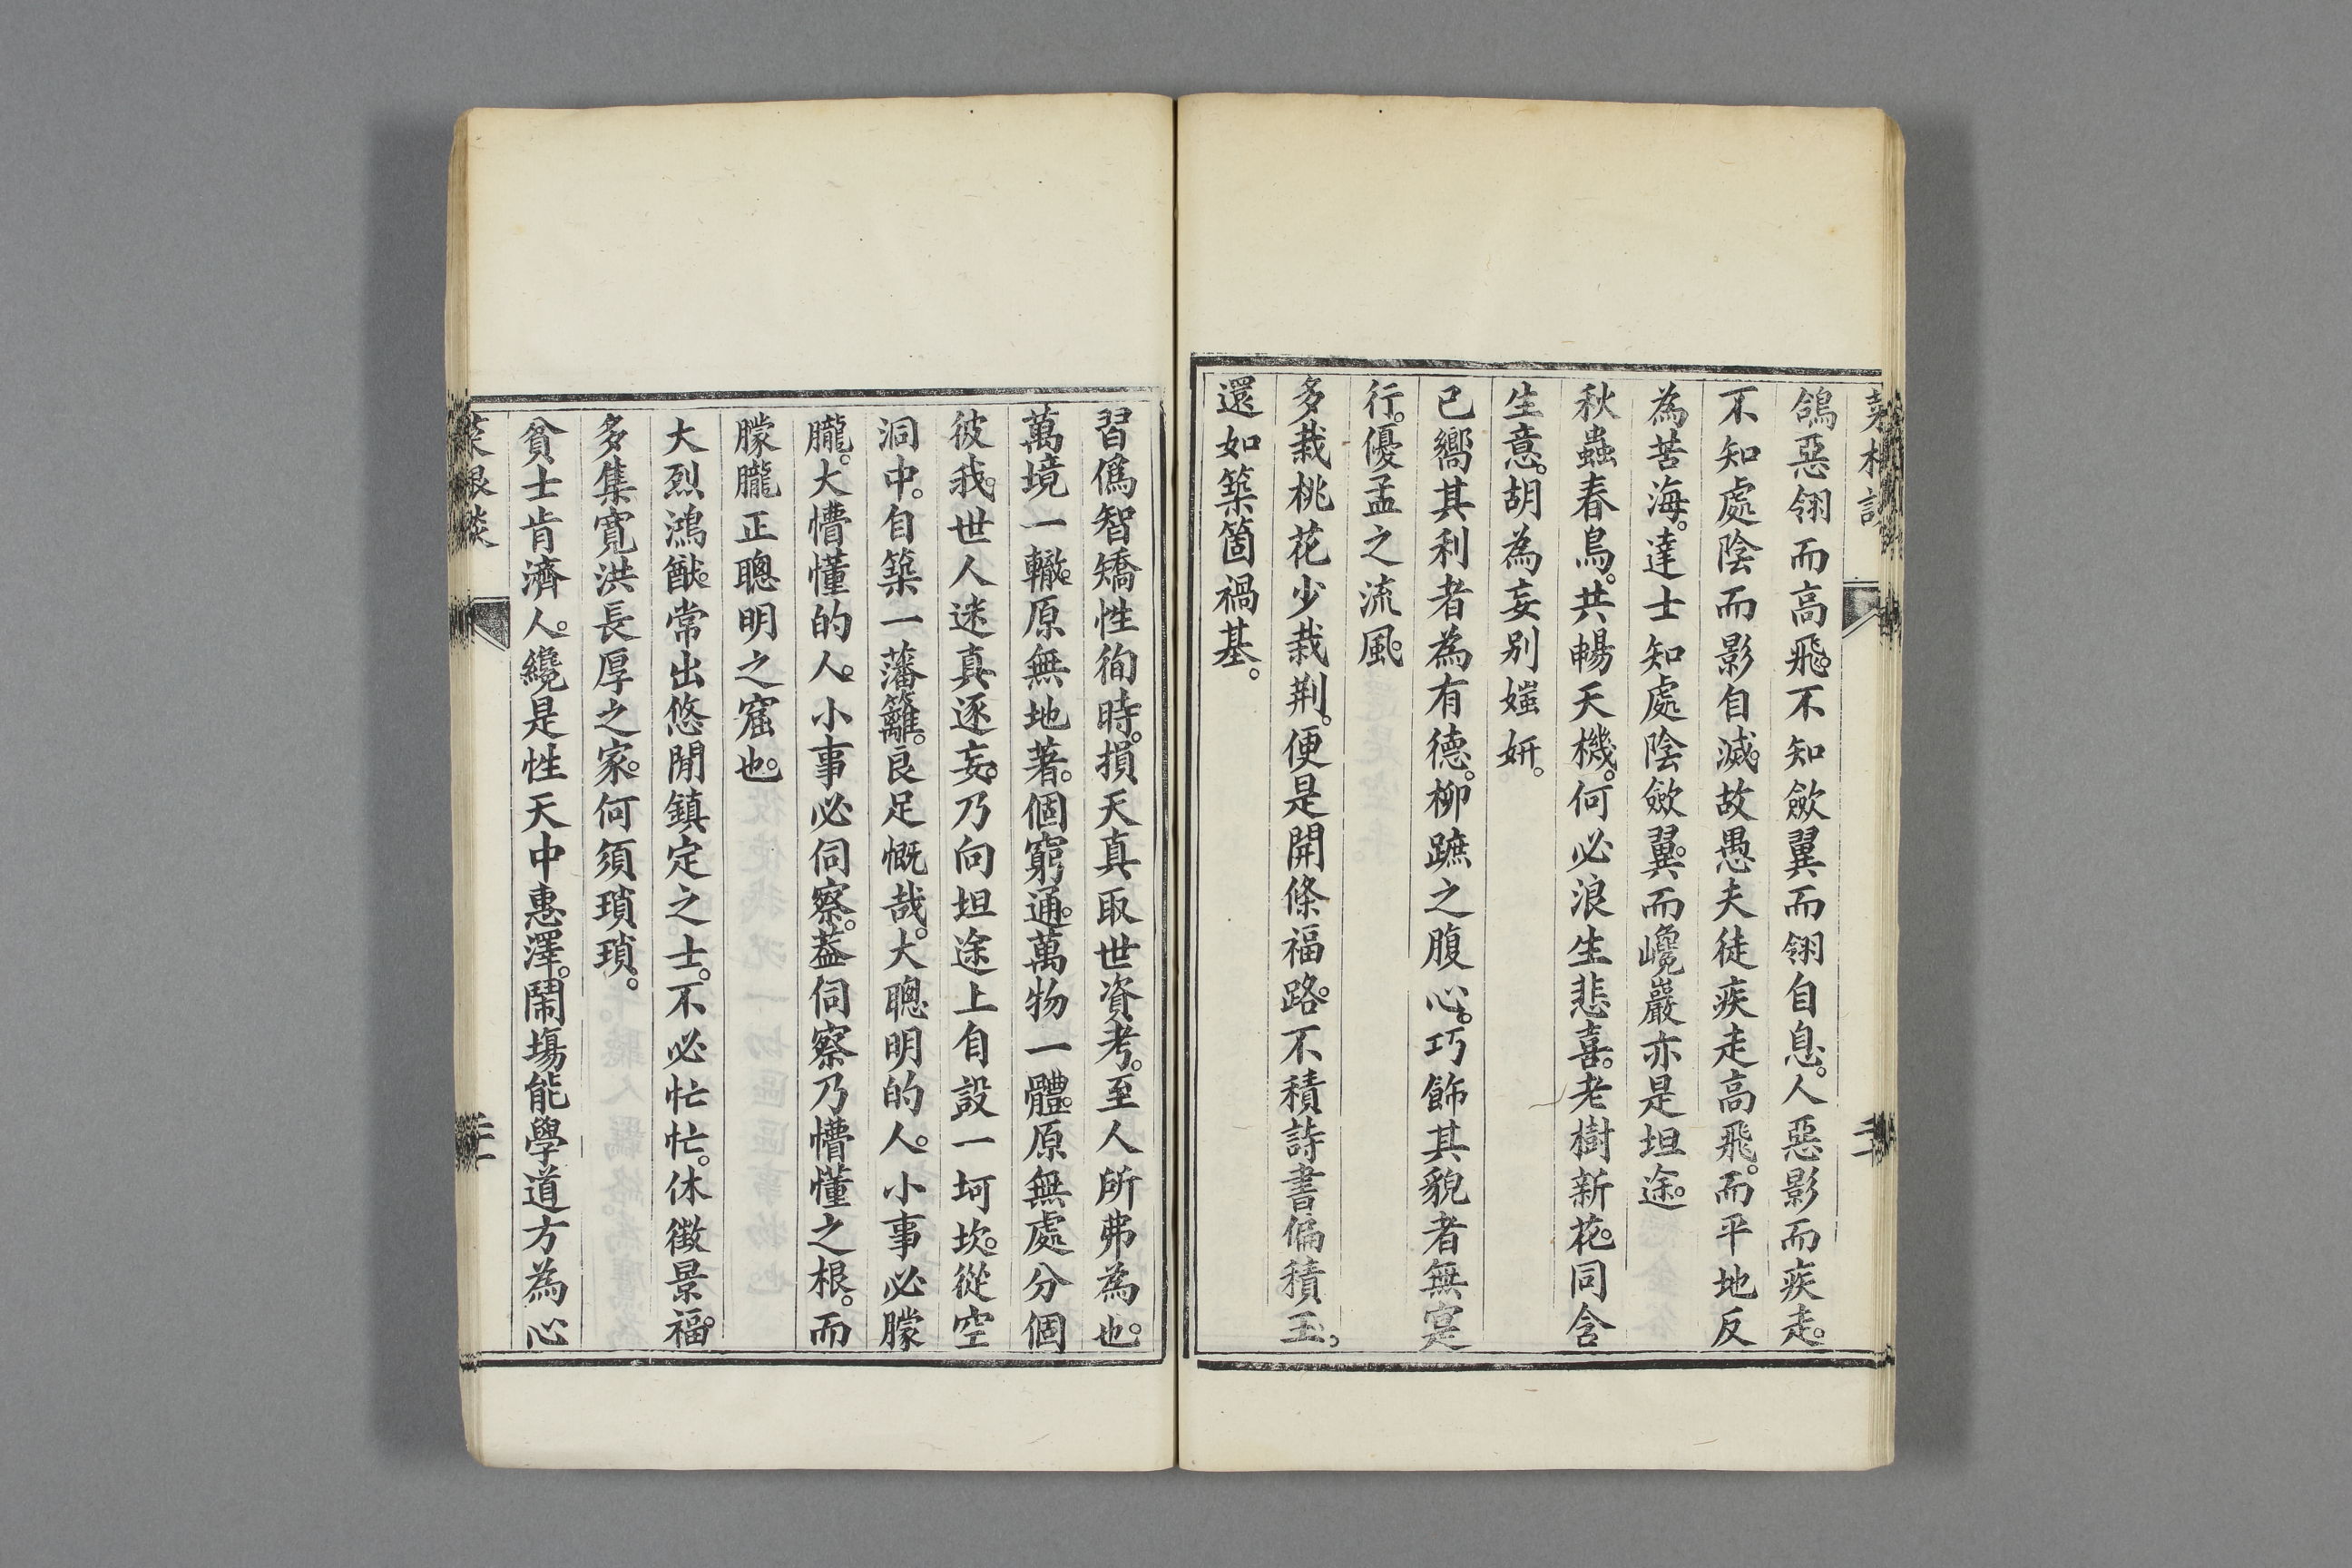 菜根談
鴿惡翎而高飛。不知歛翼而翎自息。人惡影而疾走。
不知處陰而影自滅。故愚夫徒疾走高飛。而平地反
為苦海。達士知處陰歛翼。而巉巖亦是坦途。
秋蟲春鳥。共暢天機。何必浪生悲喜。老樹新花。同含
生意。胡為妄別媸妍。
已嚮其利者為有德。柳蹠之腹心。巧飾其貌者無寔
行。優孟之流風。
多栽桃花少栽荆。便是開條福路。不積詩書偏積玉。
還如築箇禍基。
習僞智矯性徇時。損天真取世資考。至人所弗為也。
萬境一轍。原無地著。個窮通。萬物一體。原無處分個
彼我。世人迷真逐妄。乃向坦途上自設一坷坎。從空
洞中。自築一藩籬。良足慨哉。大聰明的人。小事必朦
朧。大懵懂的人。小事必伺察。葢伺察乃懵懂之根。而
朦朧正聰明之窟也。
大烈鴻猷。常出悠閒鎮定之士。不必忙忙。休徵景福。
多集寬洪長厚之家。何須瑣瑣。
貧士肯濟人。纔是性天中惠澤。鬧場能學道方為心
菜根談